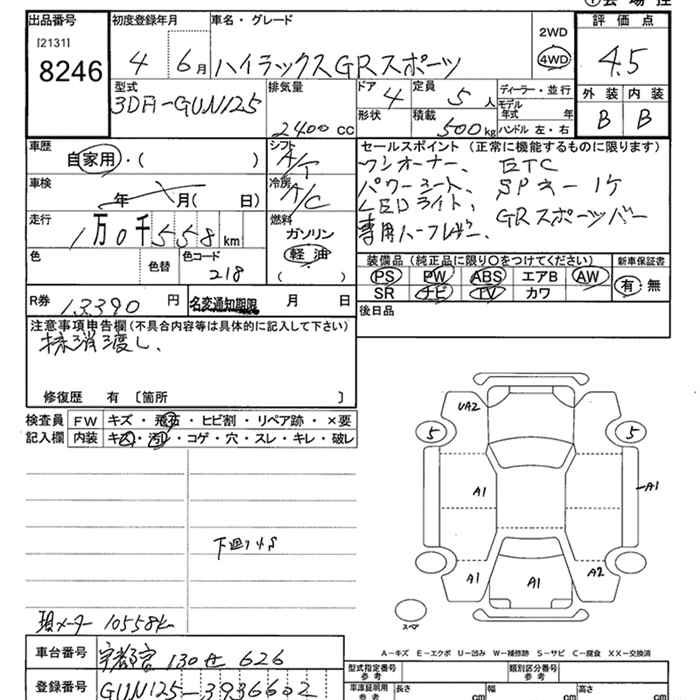 出品番号 初度登録年月 車名・グレード 評価点
[2131] 8246
4 6月 ハイラックスGRスポーツ 2WD 4WD 4.5
型式 排気量 ドア 定員 ディーラー・並行 外装 内装
3DF-GUN125 2400 cc 4 5人 モデル年式 年 B B
形状 積載 500kg ハンドル 左・右
車歴 シフト セールスポイント (正常に機能するものに限ります)
自家用・( ) A/T ワンオーナー、 ETC
車検 冷房 パワーシート、 SPキー1ケ
年 月( 日) A/C LEDライト、 GRスポーツバー
走行 燃料 専用ハーフレザー、
1万0千558km ガソリン
色 色替 色コード 軽油 装備品 (純正品に限り○をつけてください) 新車保証書
218 ( ) PS PW ABS エアB AW 有・無
R券 13390円 名変通知期限 月 日 SR ナビ TV カワ
注意事項申告欄(不具合内容等は具体的に記入して下さい) 後日品
抹消渡し、
修復歴 有 〔箇所 〕
検査員 FW キズ・飛石・ヒビ割・リペア跡・×要
記入欄 内装 キズ・汚れ・コゲ・穴・スレ・キレ・破レ
UA2
5 5
A1 A1
下廻りサビ
A1 A1 A2
現メーター 10558km スペア
A−キズ E−エクボ U−凹み W−補修跡 S−サビ C−腐食 XX−交換済
車台番号 宇都宮 130 せ 626 型式指定番号 参考 類別区分番号 参考
登録番号 GUN125-3936602 車庫証明用 参考 長さ cm 幅 cm 高さ cm